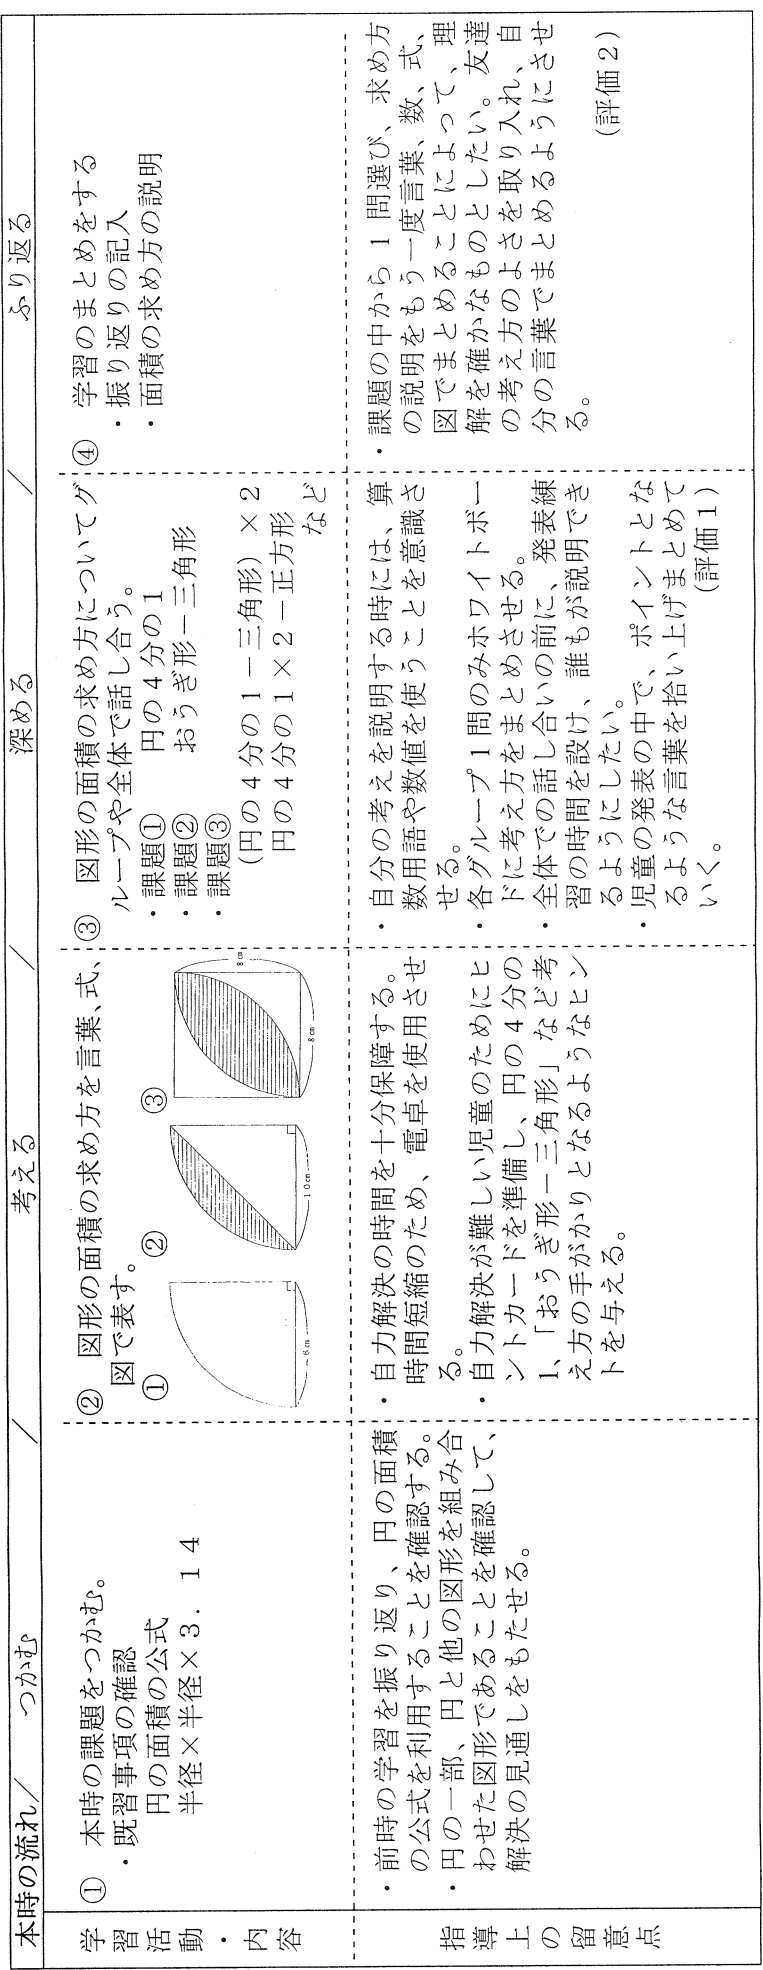 本時の流れ/ つかむ / 考える / 深める / ふり返る
学習活動・内容
① 本時の課題をつかむ。
・既習事項の確認
円の面積の公式
半径×半径×3.14
② 図形の面積の求め方を言葉、式、
図で表す。
① ② ③
6cm
10cm
8cm
8cm
③ 図形の面積の求め方についてグ
ループや全体で話し合う。
・課題① 円の4分の1
・課題② おうぎ形－三角形
・課題③
(円の4分の1－三角形)×2
円の4分の1×2－正方形
など
④ 学習のまとめをする
・振り返りの記入
・面積の求め方の説明
指導上の留意点
・前時の学習を振り返り、円の面積
の公式を利用することを確認する。
・円の一部、円と他の図形を組み合
わせた図形であることを確認して、
解決の見通しをもたせる。
・自力解決の時間を十分保障する。
時間短縮のため、電卓を使用させ
る。
・自力解決が難しい児童のためにヒ
ントカードを準備し、円の4分の
1、「おうぎ形－三角形」など考
え方の手がかりとなるようなヒン
トを与える。
・自分の考えを説明する時には、算
数用語や数値を使うことを意識さ
せる。
・各グループ1問のみホワイトボー
ドに考え方をまとめさせる。
・全体での話し合いの前に、発表練
習の時間を設け、誰もが説明でき
るようにしたい。
・児童の発表の中で、ポイントとな
るような言葉を拾い上げまとめて
いく。 (評価1)
・課題の中から1問選び、求め方
の説明をもう一度言葉、数、式、
図でまとめることによって、理
解を確かなものとしたい。友達
の考え方のよさを取り入れ、自
分の言葉でまとめるようにさせ
る。
(評価2)